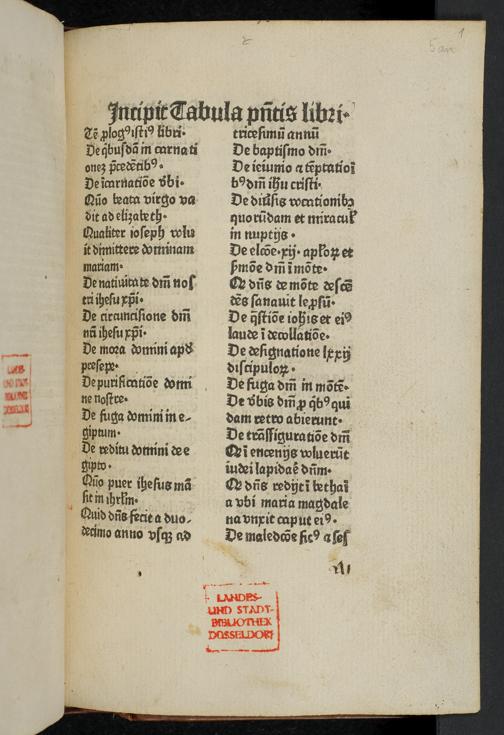 1
5an
Incipit Tabula pn̄tis libri·
Tē ꝓlogꝰ istiꝰ libri·
De q̇busdā in carnati
onez p̄cedētibꝰ·
De īcarnatiōe v̄bi·
Qūo beata virgo va
dit ad elizabeth·
Qualiter ioseph volu
it dimittere dominam
mariam·
De natiuitate dm̄ nos
tri ihesu xp̄i·
De circuncisione dm̄
nr̄i ihesu xp̄i·
De mora domini apd̄
p̄sepe·
De purificatiōe domi
ne nostre·
De fuga domini in e-
giptum·
De reditu domini de e
gipto·
Qūo puer ihesus mā
sit in ihrl̄m·
Quid dn̄s fecit a duo-
decimo anno vsqꝫ ad
tricesimū annū
De baptismo dm̄·
De ieiunio ⁊ tēptatioī
bꝰ dm̄ ih̄u cristi·
De diūsis vocationibꝫ
quorūdam et miracul̄
in nuptijs·
De elcōe·xij·apl̓oꝝ et
s̄mōe dm̄ ī mōte·
Qꝫ dn̄s de mōte descē
dēs sanauit lep̄sū·
De q̄stiōe ioh̄is et eiꝰ
laude ī decollatiōe·
De designatione lxxij
discipuloꝝ·
De fuga dm̄ in mōtē·
De v̄bis dm̄ ꝓ q̇bꝰ qui
dam retro abierunt·
De trāsfiguratiōe dm̄
Qꝫ ī encenijs voluerūt
iudei lapidaē dn̄m·
Qꝫ dn̄s redijt ī bethai
a vbi maria magdale
na vnxit caput eiꝰ·
De maledcōe ficꝰ ⁊ ses
LANDES-
UND STADT-
BIBLIOTHEK
DÜSSELDORF
LANDES-
UND STADT-
BIBLIOTHEK
DÜSSELDORF